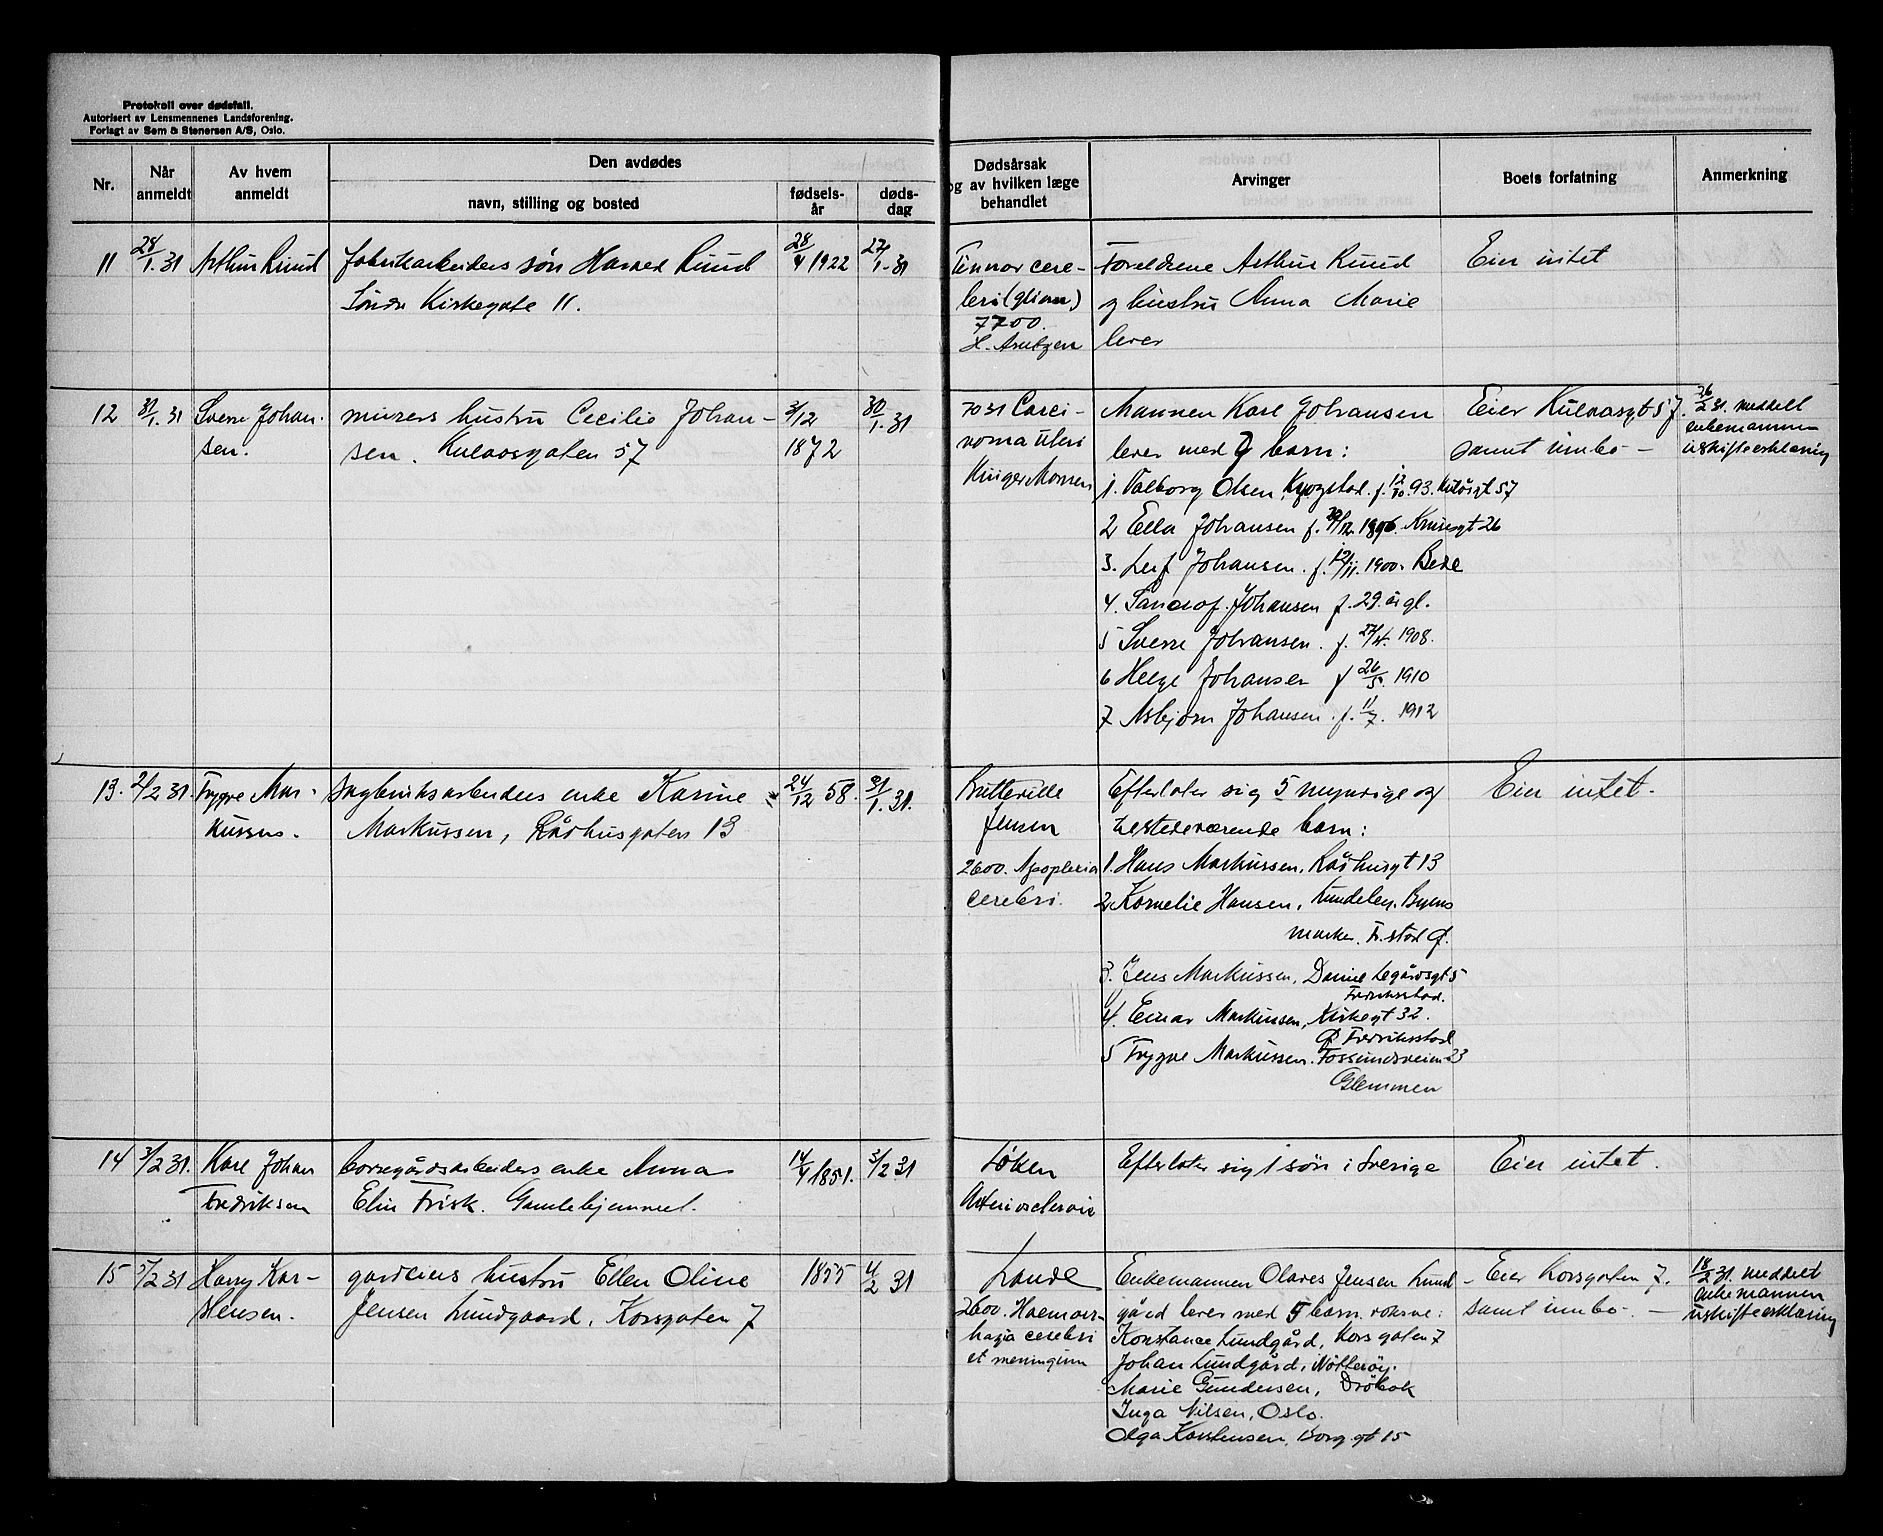 Protokoll over dødsfall.
Autorisert av Lensmennenes Landsforening.
Forlagt av Sem & Stenersen A/S, Oslo.
Nr.
Når anmeldt
Av hvem anmeldt
Den avdødes
navn, stilling og bosted
fødsels-år
døds-dag
Dødsårsak og av hvilken læge behandlet
Arvinger
Boets forfatning
Anmerkning
11 28/1. 31 Arthur Ruud fabrikarbeiders søn Harald Ruud 28/4 1922 27/1. 31
Søndre Kirkegate 11.
Tumor cere-
beri (gliom)
7700.
H. Arntzen
Foreldrene Arthur Ruud
og hustru Anna Marie
lever
Eier intet
12 31/1. 31 Sverre Johan- murers hustru Cecilie Johan- 3/12 30/1. 31
sen. sen. Kulaasgaten 57 1872
7031 Carci-
noma uteri
Kinger Monsen
Mannen Karl Johansen
lever med 7 barn:
1. Valborg Olsen, f. 12/10. 93. Kulåsgt 57
2 Ella Johansen f. 29/12. 1896. Kruisegt 26
3. Leif Johansen. f. 12/11. 1900.
4. Sandof Johansen f. 29. år gl.
5 Sverre Johansen. f. 27/4. 1908.
6 Helge Johansen f 26/5. 1910
7 Asbjørn Johansen. f. 11/7. 1912
Eier Kulaasgt 57.
samt innbo -
26/2 31. meddelt
enkemannen
uskifteerklæring
13. 2/2 31. Trygve Mar- sagbruksarbeiders enke Karine 24/12 58. 31/1. 31.
kussen. Markussen, Rådhusgaten 13
Butterude
Jensen
2600. Apoplexia
cerebri.
Efterlater sig 5 myndige og
tilstedeværende barn:
1. Hans Markussen, Rådhusgt 13
2 Kornelie Hansen, Lundeby. Byens
marker. Fr.stad Ø.
3. Jens Markussen, Damlegårdsgt 5
Fredriksstad.
4. Einar Markussen, Kirkegt 32.
Ø Fredriksstad
5 Trygve Markussen. Fossundsveien 23
Glemmen
Eier intet.
14 3/2 31. Karl Johan borregårdsarbeiders enke Anna 14/4 1851. 3/2 31
Fredriksen Elin Frisk. Gamlehjemmet.
Løken
Arteriosclerosis
Efterlater sig 1 søn i Sverige
Eier intet.
15 5/2 31 Harry Kar- gardeins hustru Ellen Oline 1855 4/2 31
stensen. Jensen Lundgaard, Korsgaten 7
Lande
2600. Haemorr-
hagia cerebri
et meningium
Enkemannen Olaves Jensen Lund-
gård lever med 5 barn voksne:
Konstance Lundgård, Korsgaten 7
Johan Lundgård, Nøtterøy.
Marie Gundersen, Drøbak
Inga Nilsen, Oslo.
Olga Karstensen, Borg.gt 15
Eier Korsgaten 7.
samt innbo. -
18/2 31. meddelt
enkemannen
uskifteerklæring